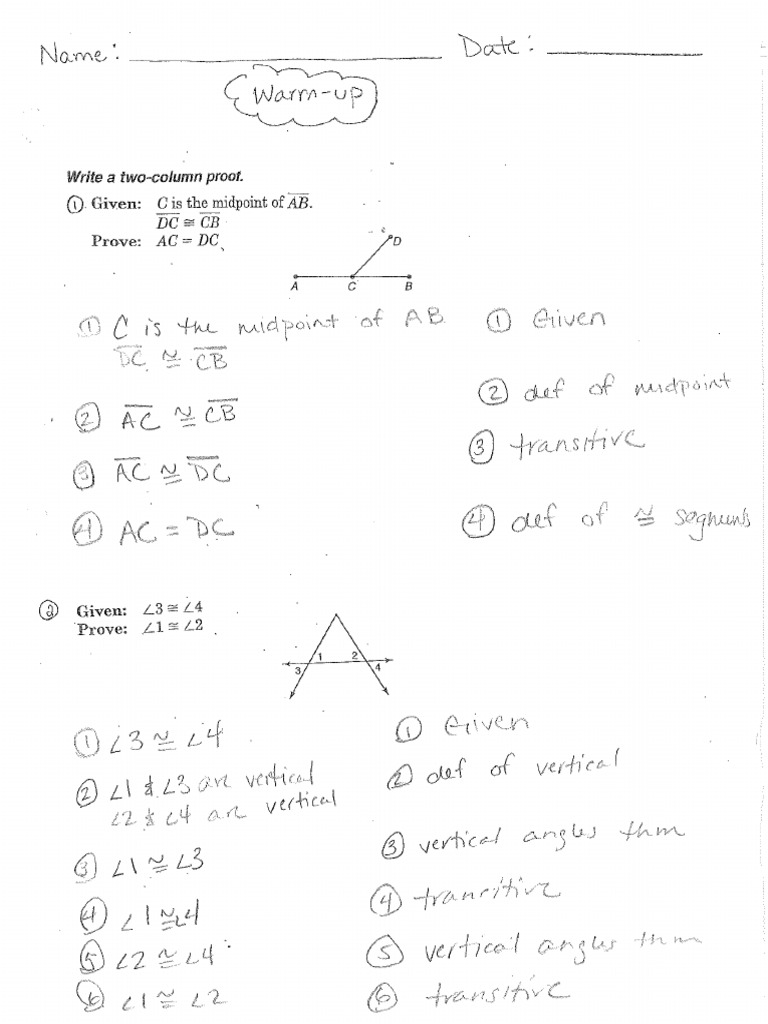 Name: ____________ Date: ____________
Warm-up
Write a two-column proof.
① Given: C is the midpoint of A̅B̅.
D̅C̅ ≅ C̅B̅
Prove: AC = DC
D
A C B
① C is the midpoint of AB ① Given
D̅C̅ ≅ C̅B̅
② def of midpoint
② A̅C̅ ≅ C̅B̅
③ transitive
③ A̅C̅ ≅ D̅C̅
④ AC = DC ④ def of ≅ segments
② Given: ∠3 ≅ ∠4
Prove: ∠1 ≅ ∠2
1 2
3 4
① ∠3 ≅ ∠4 ① Given
② ∠1 & ∠3 are vertical ② def of vertical
∠2 & ∠4 are vertical
③ ∠1 ≅ ∠3 ③ vertical angles thm
④ ∠1 ≅ ∠4 ④ transitive
⑤ ∠2 ≅ ∠4 ⑤ vertical angles thm
⑥ ∠1 ≅ ∠2 ⑥ transitive